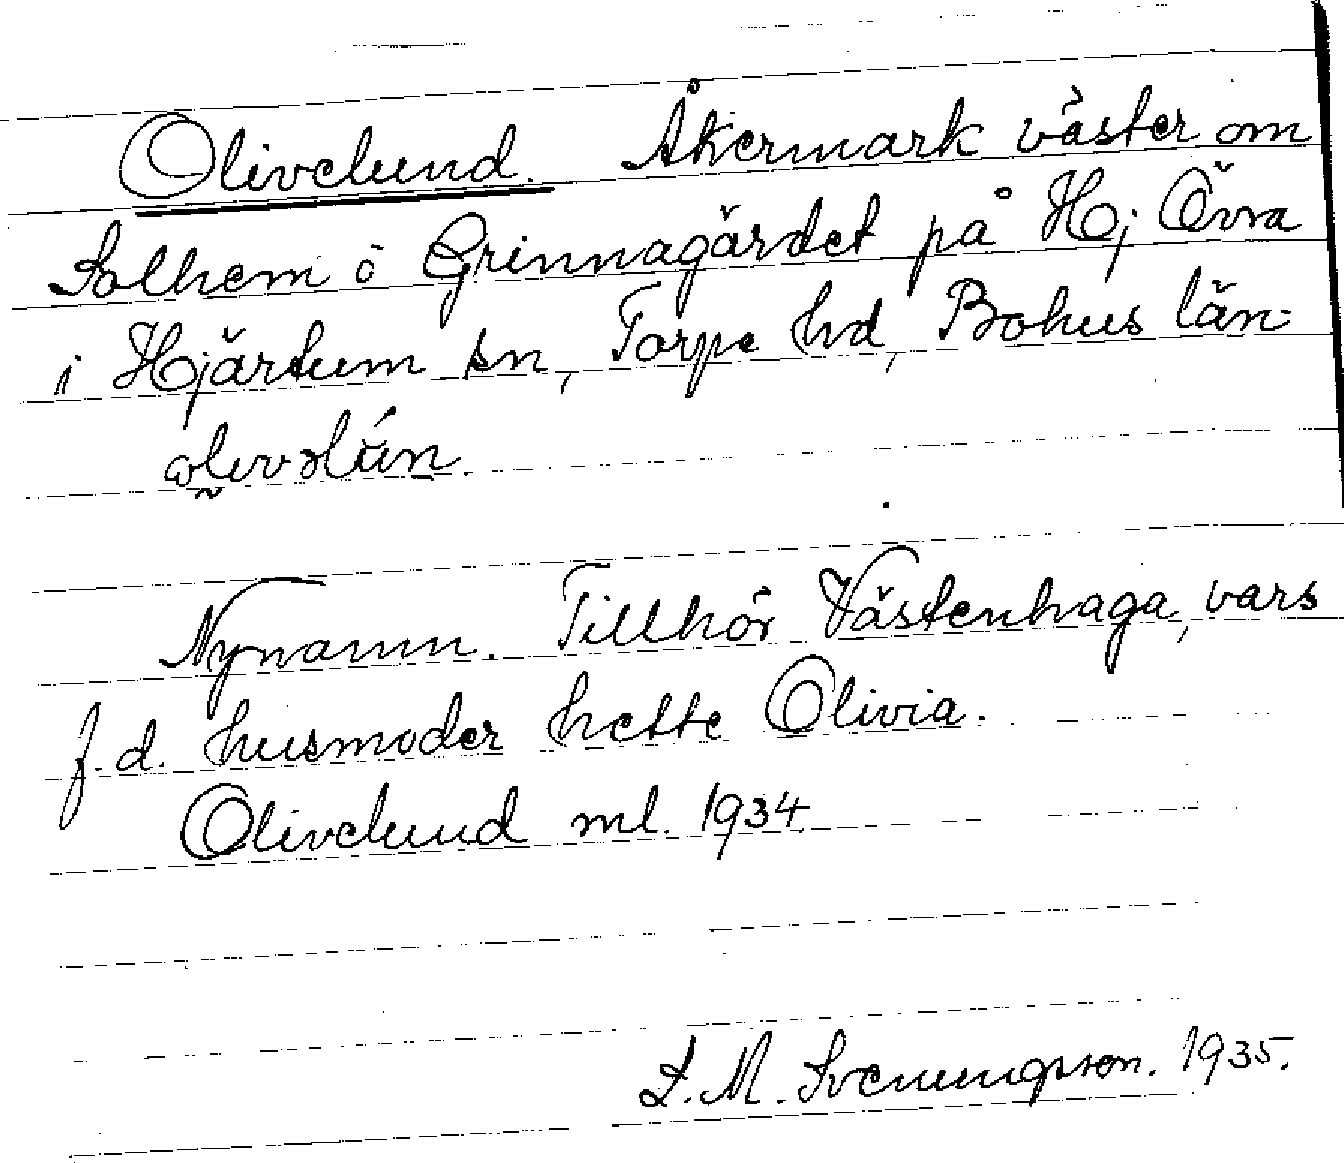 Olivelund. Åkermark väster om
Solhem ö Grinnagärdet på Hj Övra
i Hjärtum sn, Torpe hd, Bohus län
Nynamn. Tillhör Västenhaga, vars
f. d. husmoder hette Olivia.
Olivelund ml. 1934
L. M. Svenungsson. 1935.